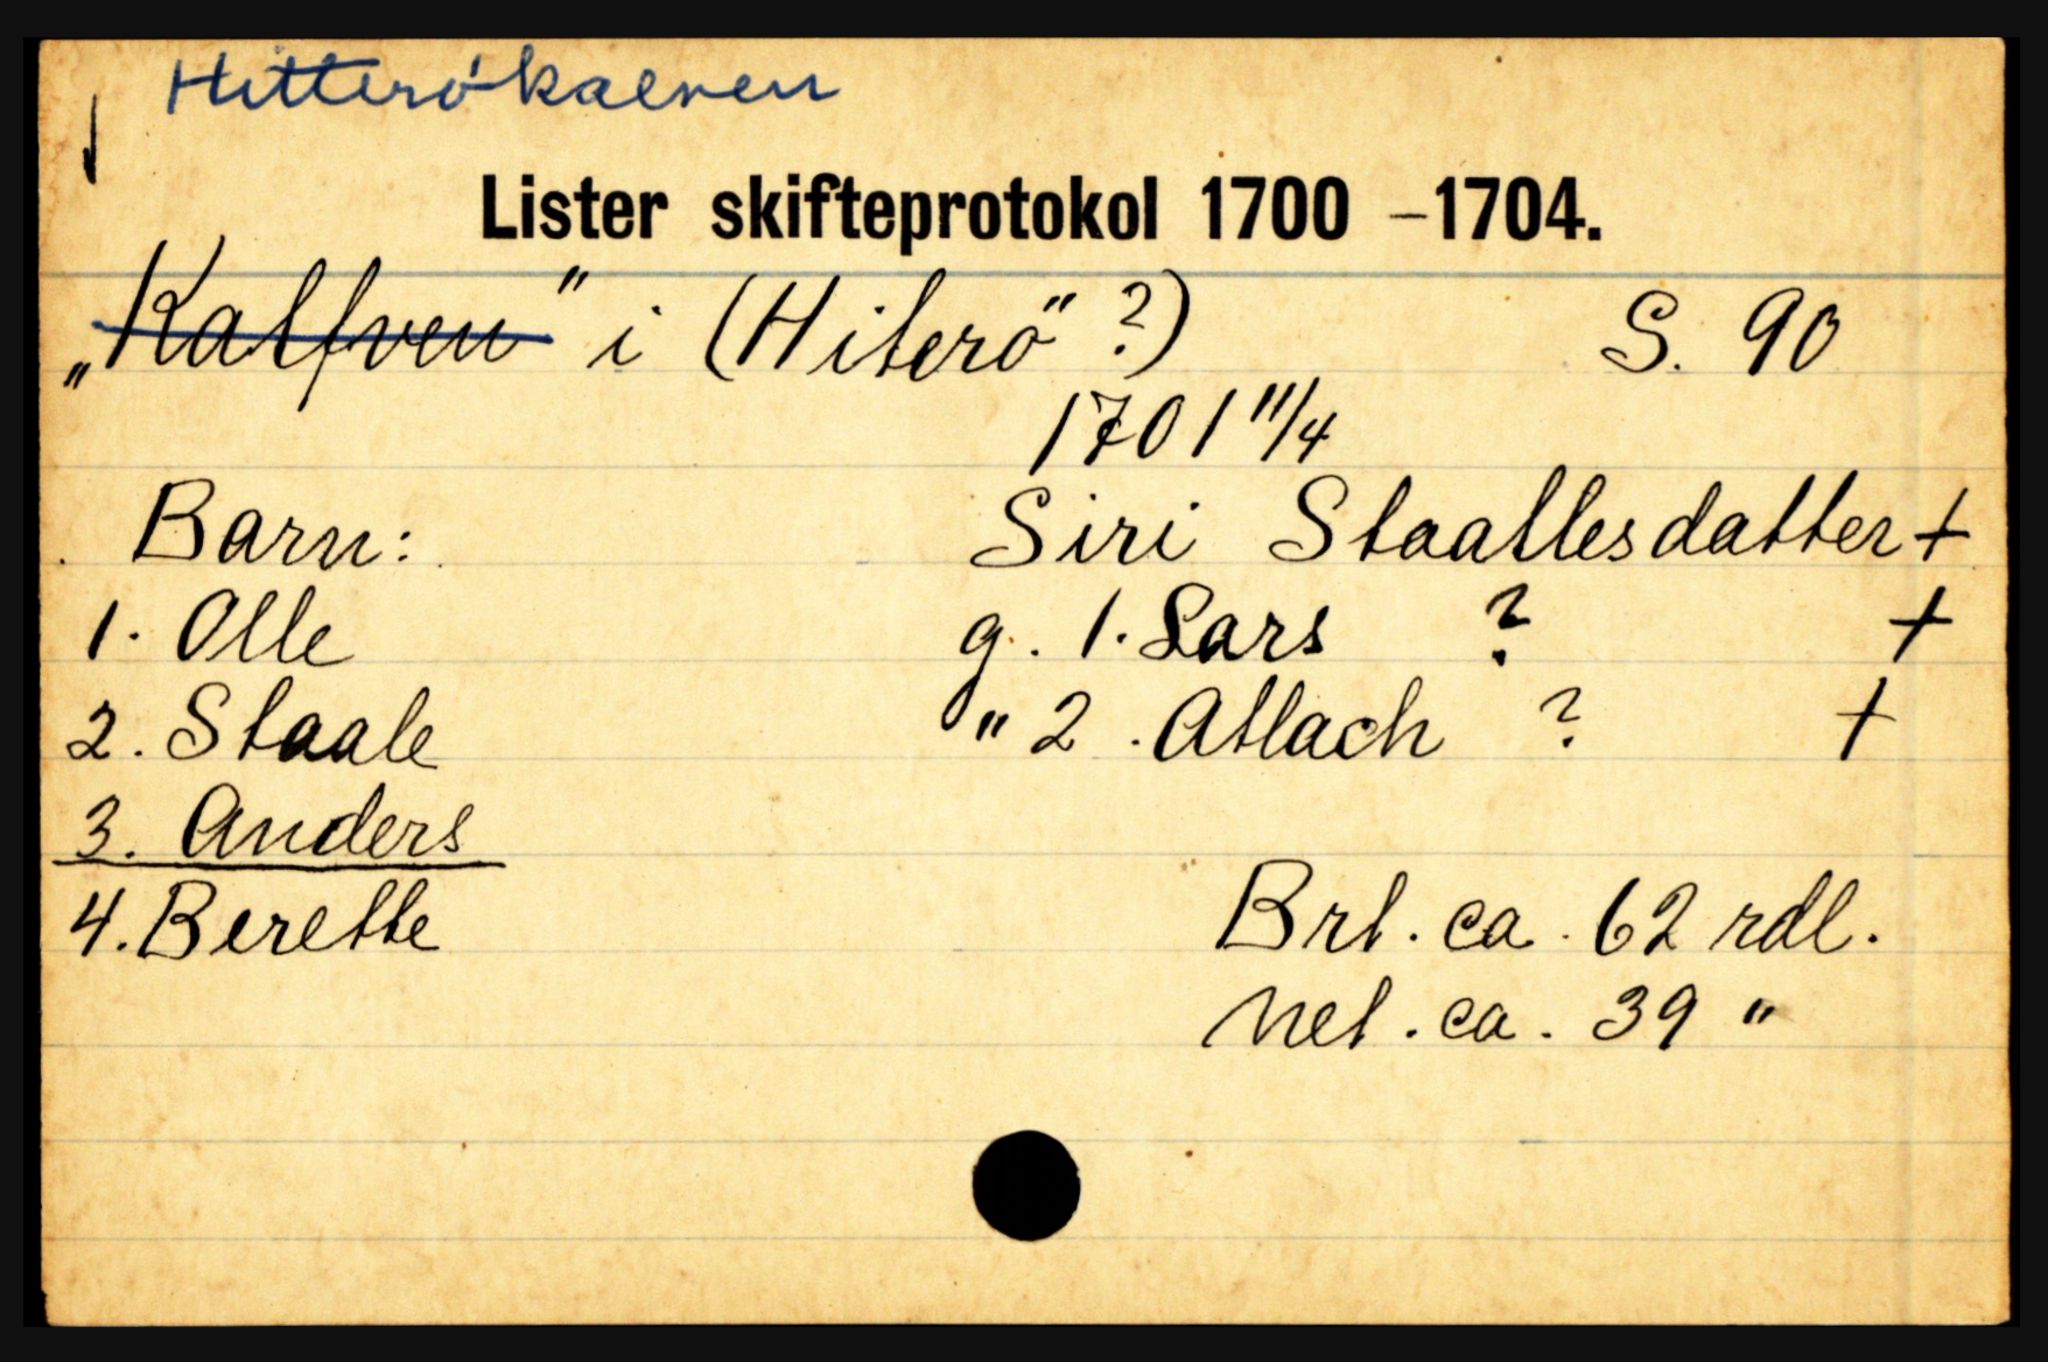 Hitterökalven
Lister skifteprotokol 1700 –1704.
„Kalfven" i (Hiterö" ?) S. 90
1701 11/4
Barn: Siri Staallesdatter +
1. Olle g. 1. Lars ? +
2. Staale " 2. Atlach ? +
3. Anders
4. Berette Brt. ca. 62 rdl.
Net. ca. 39 "